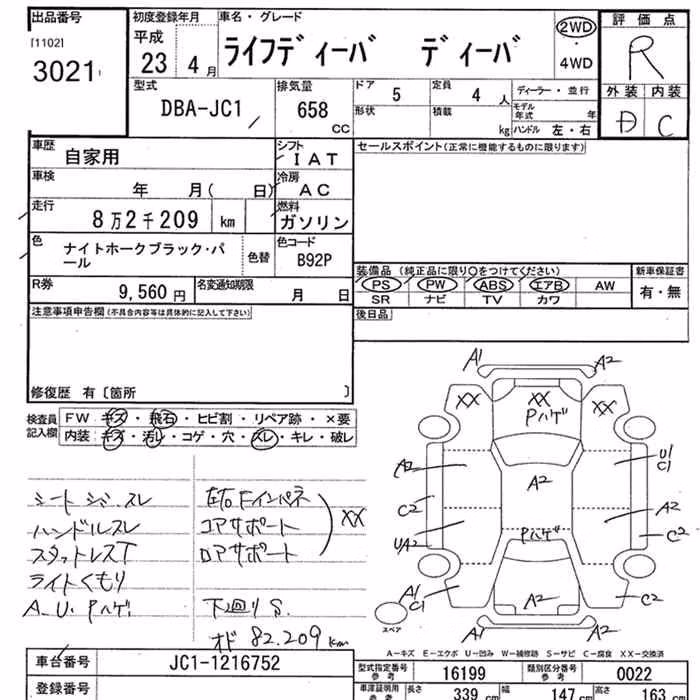 出品番号
[1102]
3021
初度登録年月
平成
23 4 月
車名・グレード
ライフディーバ ディーバ
2WD
・
4WD
評価点
R
外装 内装
D C
型式
DBA-JC1
排気量
658
CC
ドア 5 定員 4 人
形状 積載 kg
ディーラー・並行
モデル年式 年
ハンドル 左・右
車歴
自家用
シフト
IAT
車検
年 月( 日)
冷房
AC
走行
8万2千209 km
燃料
ガソリン
色
ナイトホークブラック・パ
ール
色替
色コード
B92P
R券
9,560 円
名変通知期限
月 日
セールスポイント(正常に機能するものに限ります)
装備品 (純正品に限り○をつけてください)
PS PW ABS エアB AW
SR ナビ TV カワ
新車保証書
有・無
後日品
注意事項申告欄(不具合内容等は具体的に記入して下さい)
修復歴 有〔箇所 〕
検査員
記入欄
FW キズ・飛石・ヒビ割・リペア跡・×要
内装: キズ・汚レ・コゲ・穴・スレ・キレ・破レ
シートシミ.スレ
ハンドルスレ
スタットレスT
ライトくもり
A.U.Pハゲ
左右Fインパネ
コアサポート
ロアサポート
XX
下廻りS.
オド 82.209km
A1 A2
XX XX XX
Pハゲ
A2 U1
C1
A2
C2 A2
UA2 C2
Pハゲ
A1
C1 A2 C2
A2
スペア
A-キズ E-エクボ U-凹み W-補修跡 S-サビ C-腐食 XX-交換済
車台番号
JC1-1216752
登録番号
型式指定番号
参考
16199
類別区分番号
参考
0022
車庫証明用
参考
長さ 339 cm 幅 147 cm 高さ 163 cm